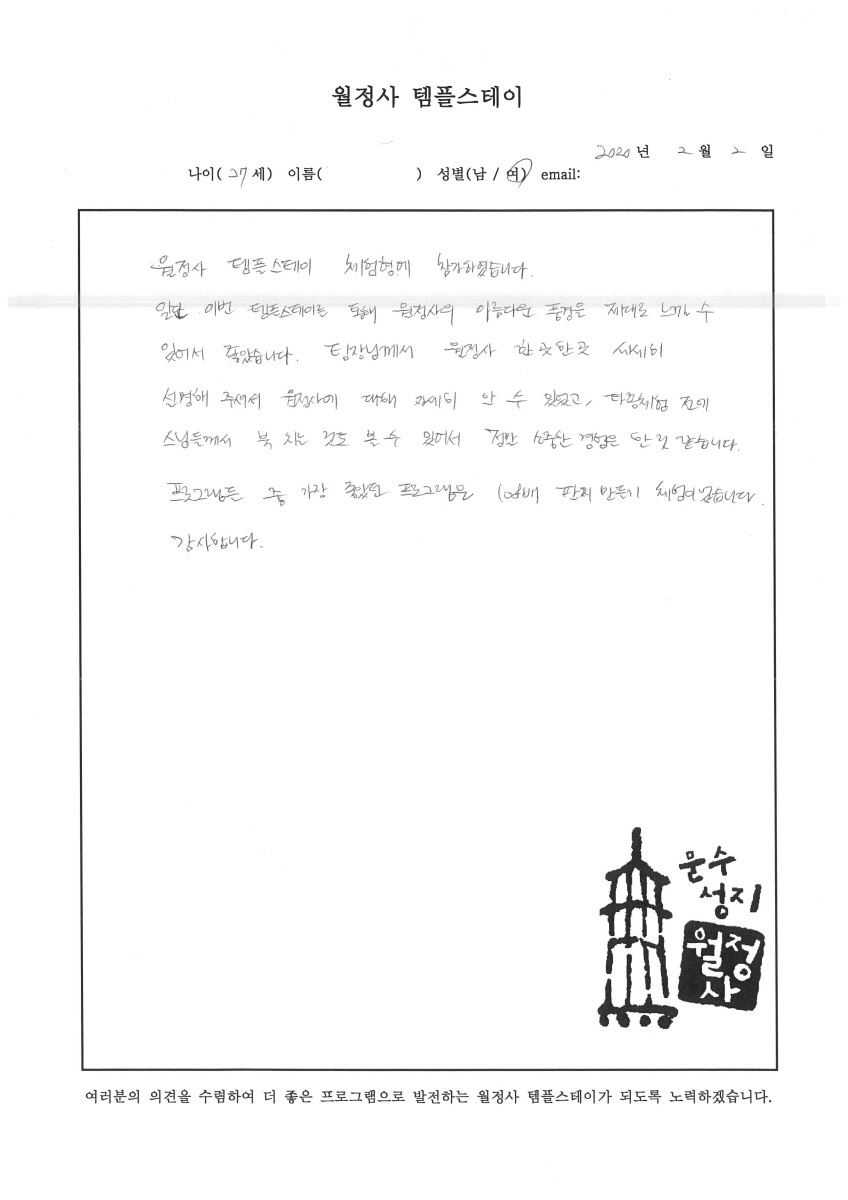 월정사 템플스테이
2020 년 2 월 2 일
나이( 27 세) 이름( ) 성별(남 / 여) email:
월정사 템플스테이 체험형에 참가하였습니다.
일단 이번 템플스테이를 통해 월정사의 아름다운 풍경을 제대로 느낄 수
있어서 좋았습니다. 팀장님께서 월정사 한곳한곳 세세히
설명해 주셔서 월정사에 대해 자세히 알 수 있었고, 타종체험 전에
스님들께서 북 치는 것도 볼 수 있어서 정말 소중한 경험을 한 것 같습니다.
프로그램들 중 가장 좋았던 프로그램은 108배 만들기 체험이었습니다.
감사합니다.
문수
성지
월정
사
여러분의 의견을 수렴하여 더 좋은 프로그램으로 발전하는 월정사 템플스테이가 되도록 노력하겠습니다.